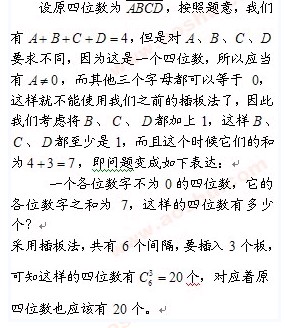 设原四位数为 ABCD，按照题意，我们
有 A+B+C+D=4，但是对 A、B、C、D
要求不同，因为这是一个四位数，所以应当
有 A≠0，而其他三个字母都可以等于 0，
这样就不能使用我们之前的插板法了，因此
我们考虑将 B、C、D 都加上 1，这样 B、
C、D 都至少是 1，而且这个时候它们的和
为 4+3=7，即问题变成如下表达：
一个各位数字不为 0 的四位数，它的
各位数字之和为 7，这样的四位数有多少
个？
采用插板法，共有 6 个间隔，要插入 3 个板，
可知这样的四位数有 C₆³=20 个，对应着原
四位数也应该有 20 个。